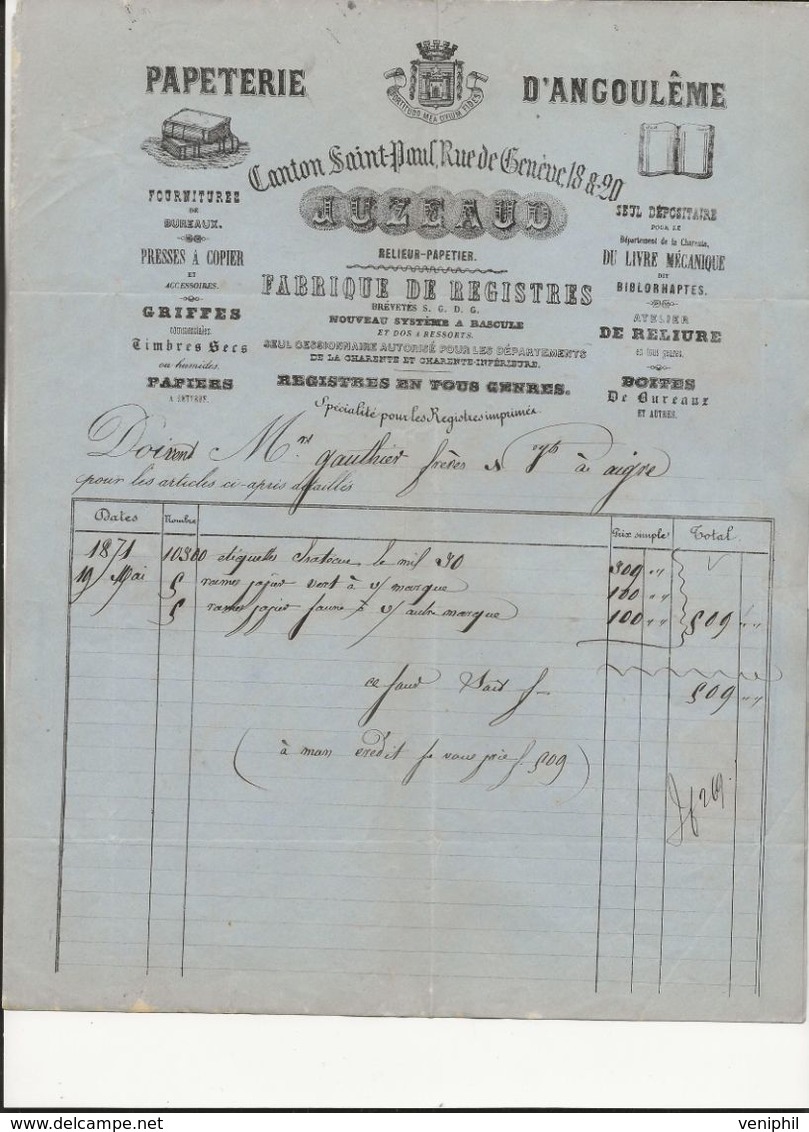 PAPETERIE D'ANGOULÊME
FORTITUDO MEA CIVIUM FIDES
Canton Saint-Paul, Rue de Genève, 18 & 20
JUZEAUD
RELIEUR-PAPETIER.
FABRIQUE DE REGISTRES
BREVETÉS S. G. D. G.
NOUVEAU SYSTÈME A BASCULE
ET DOS A RESSORTS.
SEUL CESSIONNAIRE AUTORISÉ POUR LES DÉPARTEMENTS
DE LA CHARENTE ET CHARENTE-INFÉRIEURE.
REGISTRES EN TOUS GENRES.
Spécialité pour les Registres imprimés.
FOURNITURES
DE
BUREAUX.
PRESSES A COPIER
ET
ACCESSOIRES.
GRIFFES
commerciales.
Timbres Secs
ou humides.
PAPIERS
SEUL DÉPOSITAIRE
POUR LE
Département de la Charente,
DU LIVRE MÉCANIQUE
DIT
BIBLORHAPTES.
ATELIER
DE RELIURE
en tous genres.
BOITES
De Bureaux
ET AUTRES.
Doivent Mrs gauthier frères à aigre
pour les articles ci-après détaillés
Dates Nombre Prix simple Total
1871 10300 étiquettes le mil 30 309 "
19 Mai 5 rames papier vert à v/ marque 100 "
5 rames papier jaune v/ autre marque 100 " 509 "
ce jour Doit f 509 "
(à mon crédit je vous prie f. 509)